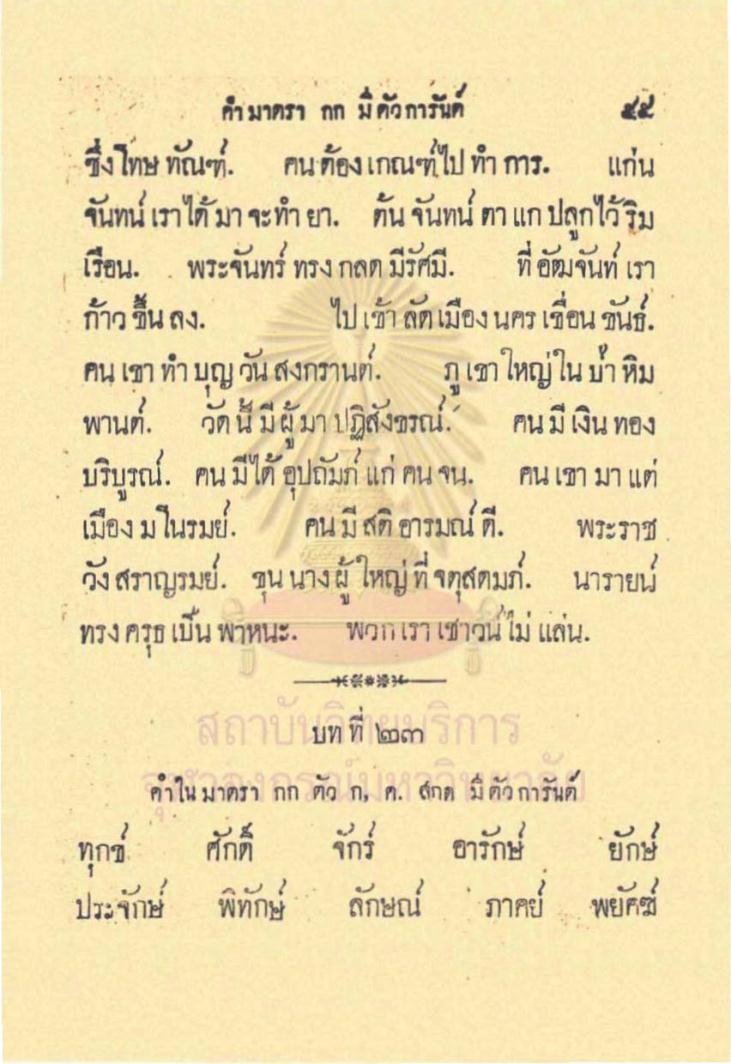 คำ มาตรา กก มี ตัว การันต์ ๔๕
ซึ่ง โทษ ทัณฑ์. คน ต้อง เกณฑ์ ไป ทำ การ. แก่น
จันทน์ เรา ได้ มา จะ ทำ ยา. ต้น จันทน์ ตา แก ปลูก ไว้ ริม
เรือน. พระจันทร์ ทรง กลด มี รัศมี. ที่ อัฒจันท์ เรา
ก้าว ขึ้น ลง. ไป เข้า ลัด เมือง นคร เขื่อน ขันธ์.
คน เขา ทำ บุญ วัน สงกรานต์. ภู เขา ใหญ่ ใน ป่า หิม
พานต์. วัด นี้ มี ผู้ มา ปฏิสังขรณ์. คน มี เงิน ทอง
บริบูรณ์. คน มี ได้ อุปถัมภ์ แก่ คน จน. คน เขา มา แต่
เมือง มโนรมย์. คน มี สติ อารมณ์ ดี. พระราช
วัง สราญรมย์. ขุน นาง ผู้ ใหญ่ ที่ จตุสดมภ์. นารายน์
ทรง ครุธ เป็น พาหนะ. พวก เรา เชาวน์ ไม่ แล่น.
บท ที่ ๒๓
คำ ใน มาตรา กก ตัว ก, ค. สกด มี ตัว การันต์
ทุกข์ ศักดิ์ จักร์ อารักษ์ ยักษ์
ประจักษ์ พิทักษ์ ลักษณ์ ภาคย์ พยัคฆ์
สถาบันวิทยบริการ
จุฬาลงกรณ์มหาวิทยาลัย